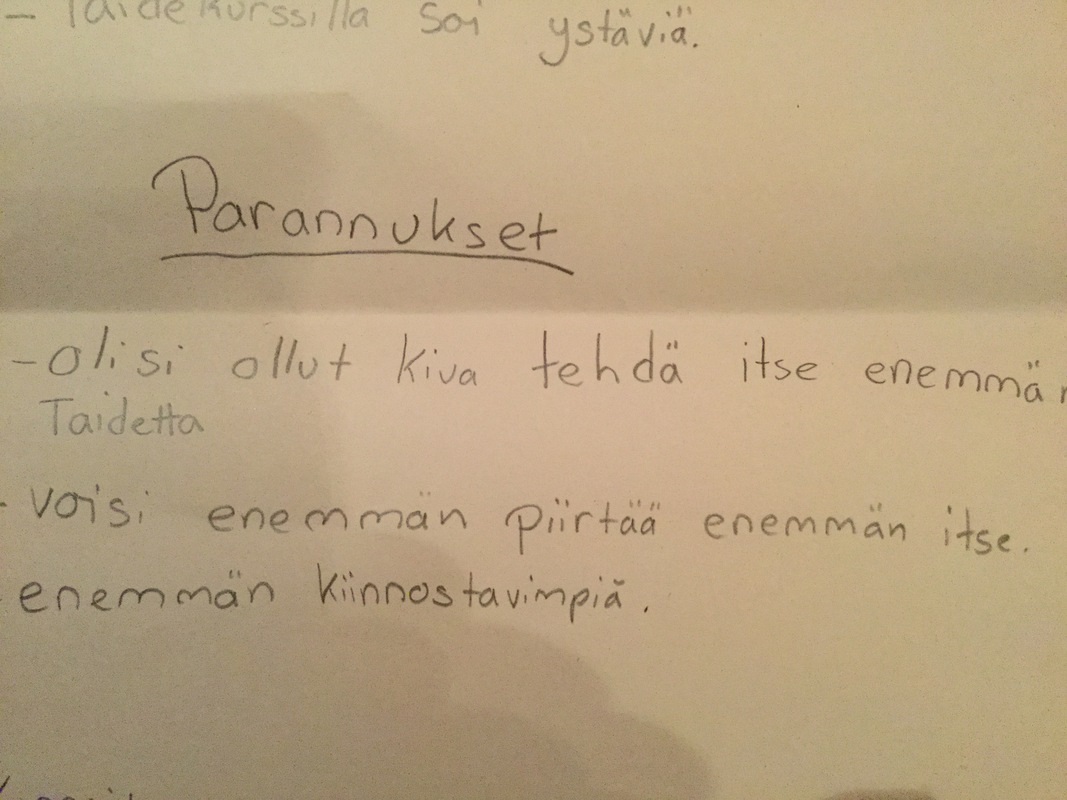 - Taidekurssilla Soi ystäviä.
Parannukset
- olisi ollut kiva tehdä itse enemmän
Taidetta
- voisi enemmän piirtää enemmän itse.
- enemmän kiinnostavimpiä.